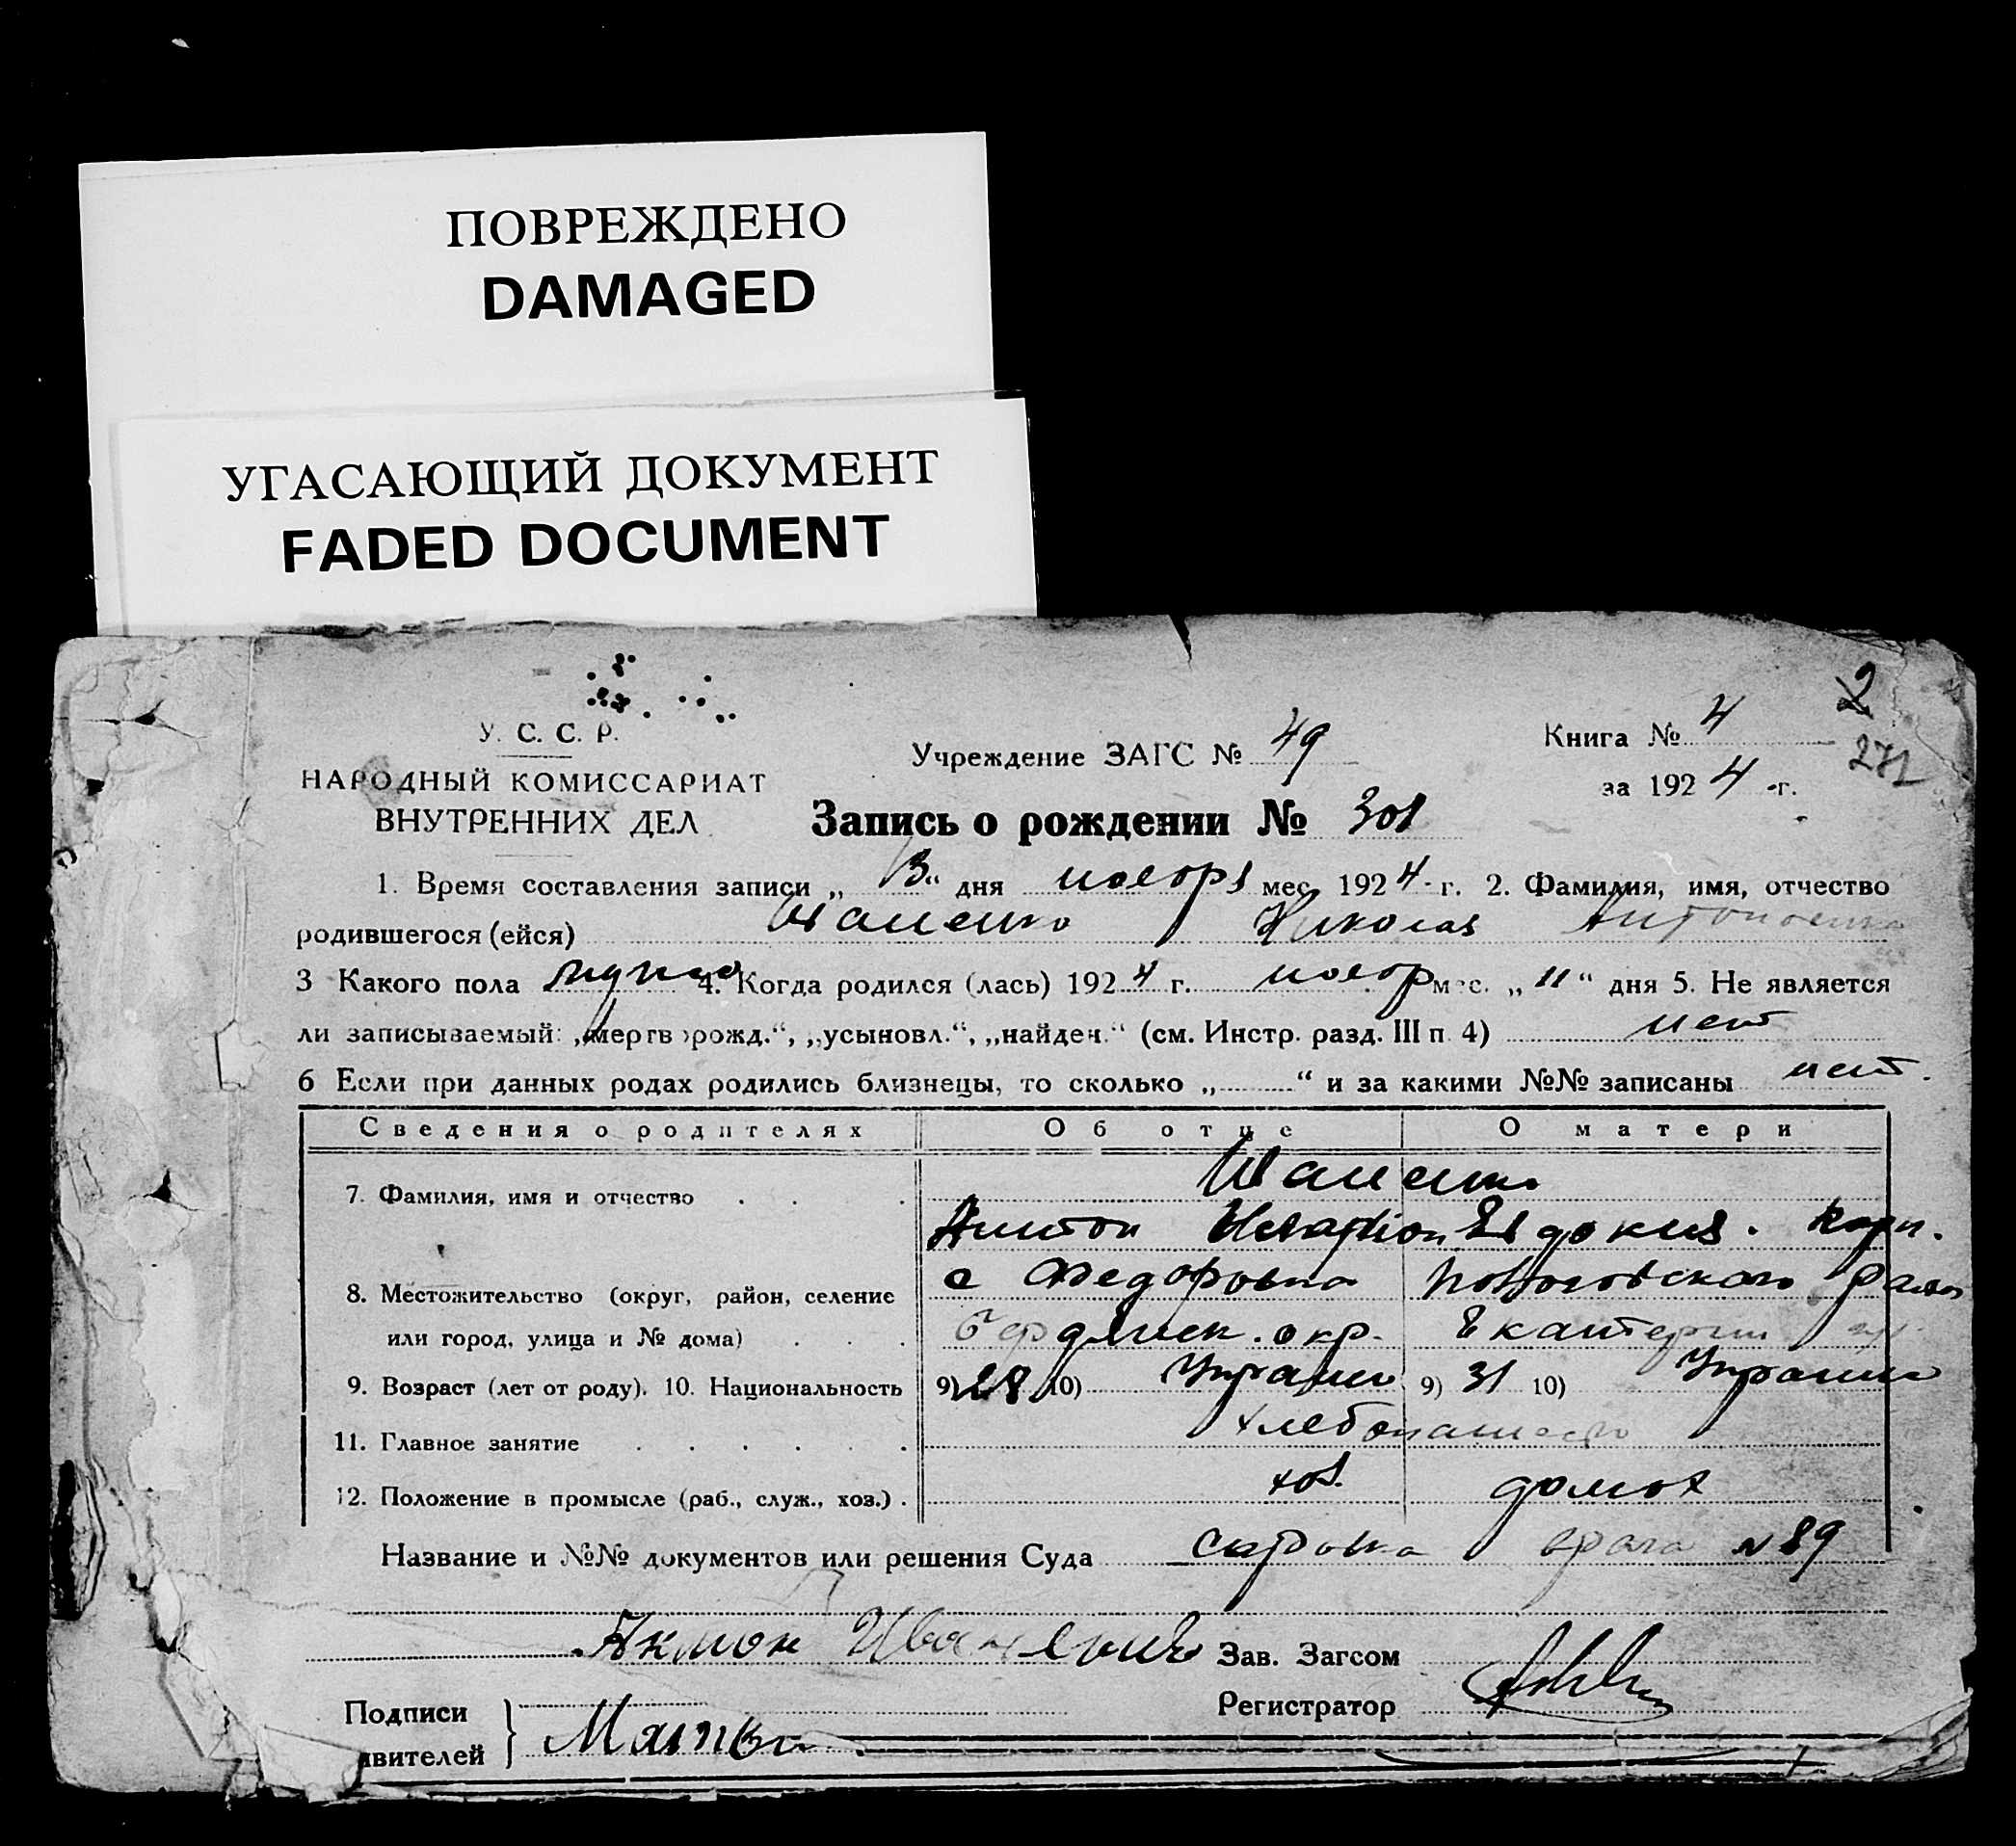 ПОВРЕЖДЕНО
DAMAGED
УГАСАЮЩИЙ ДОКУМЕНТ
FADED DOCUMENT
2
271
У. С. С. Р.
НАРОДНЫЙ КОМИССАРИАТ
ВНУТРЕННИХ ДЕЛ
Учреждение ЗАГС № 49
Книга № 4
за 1924 г.
Запись о рождении № 301
1. Время составления записи „13“ дня ноября мес. 1924 г. 2. Фамилия, имя, отчество
родившегося (ейся) Николай
3 Какого пола 4. Когда родился (лась) 1924 г. ноябр мес. „11“ дня 5. Не является
ли записываемый: „мертворожд.“, „усыновл.“, „найден.“ (см. Инстр. разд. III п 4) нет
6 Если при данных родах родились близнецы, то сколько „ “ и за какими №№ записаны нет.
Сведения о родителях Об отце О матери
7. Фамилия, имя и отчество
Антон Евдокия. Карп.
8. Местожительство (округ, район, селение
с Федоровка района
или город, улица и № дома)
Бердянск. окр. Екатерин
9. Возраст (лет от роду). 10. Национальность 9) 28 10) Украин 9) 31 10) Украин
11. Главное занятие хлебопашество
12. Положение в промысле (раб., служ., хоз.) хоз. домох
Название и №№ документов или решения Суда справка врача № 89
Зав. Загсом
Подписи
Регистратор
явителей